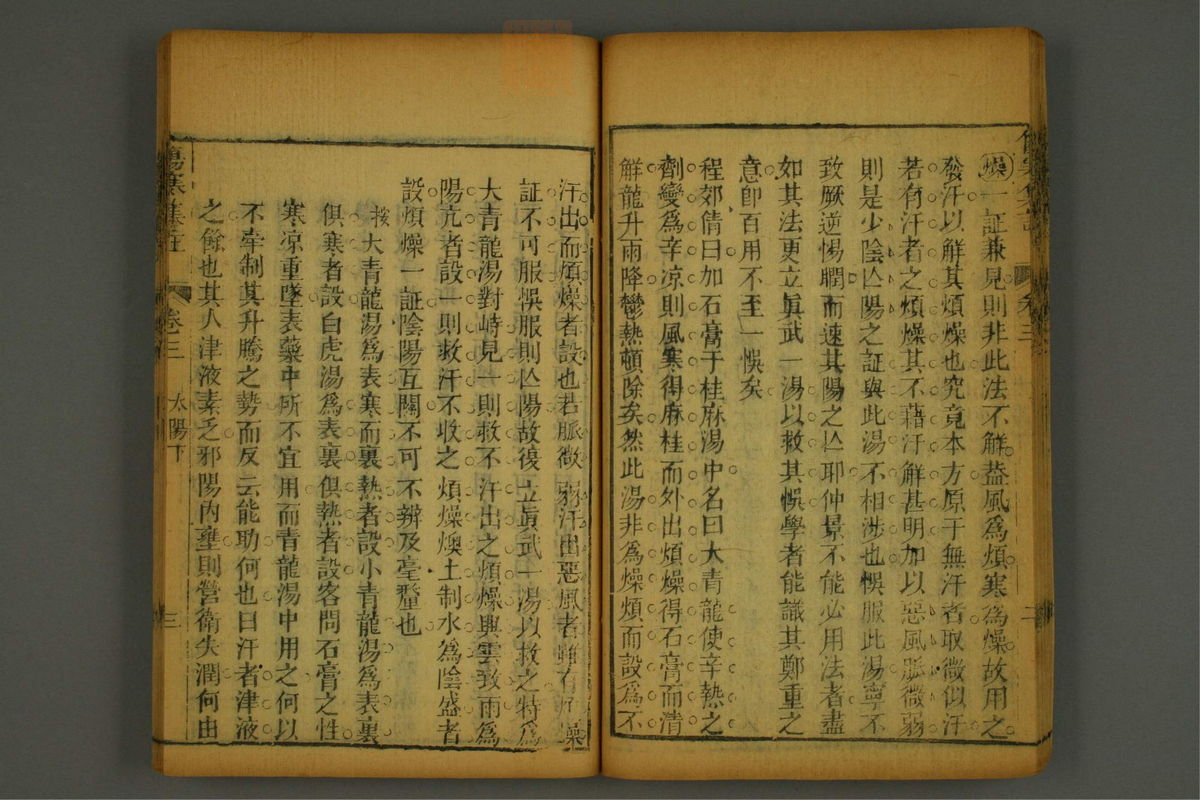 燥一証兼見則非此法不解葢風爲煩寒爲燥故用之
發汗以解其煩燥也究竟本方原于無汗者取微似汗
若有汗者之煩燥其不藉汗解甚明加以惡風脈微弱
則是少陰亾陽之証與此湯不相涉也悞服此湯寧不
致厥逆惕瞤而速其陽之亾耶仲景不能必用法者盡
如其法更立眞武一湯以救其悞學者能識其鄭重之
意卽百用不至一悞矣
程郊倩曰加石膏于桂麻湯中名曰大青龍使辛熱之
劑變爲辛凉則風寒得麻桂而外出煩燥得石膏而清
解龍升雨降鬱熱頓除矣然此湯非爲燥煩而設爲不
卷三
二
汗出而煩燥者設也若脈微弱汗出惡風者雖有煩燥
証不可服悞服則亾陽故復立眞武一湯以救之特爲
大青龍湯對峙見一則救不汗出之煩燥興雲致雨爲
陽亢者設一則救汗不收之煩燥燠土制水爲陰盛者
設煩燥一証陰陽互關不可不辨及毫釐也
按大青龍湯爲表寒而裏熱者設小青龍湯爲表裏
俱寒者設白虎湯爲表裏俱熱者設客問石膏之性
寒凉重墜表藥中所不宜用而青龍湯中用之何以
不牽制其升騰之勢而反云能助何也曰汗者津液
之餘也其人津液素乏邪陽內壅則營衛失潤何由
傷寒集註
卷三
太陽下
三